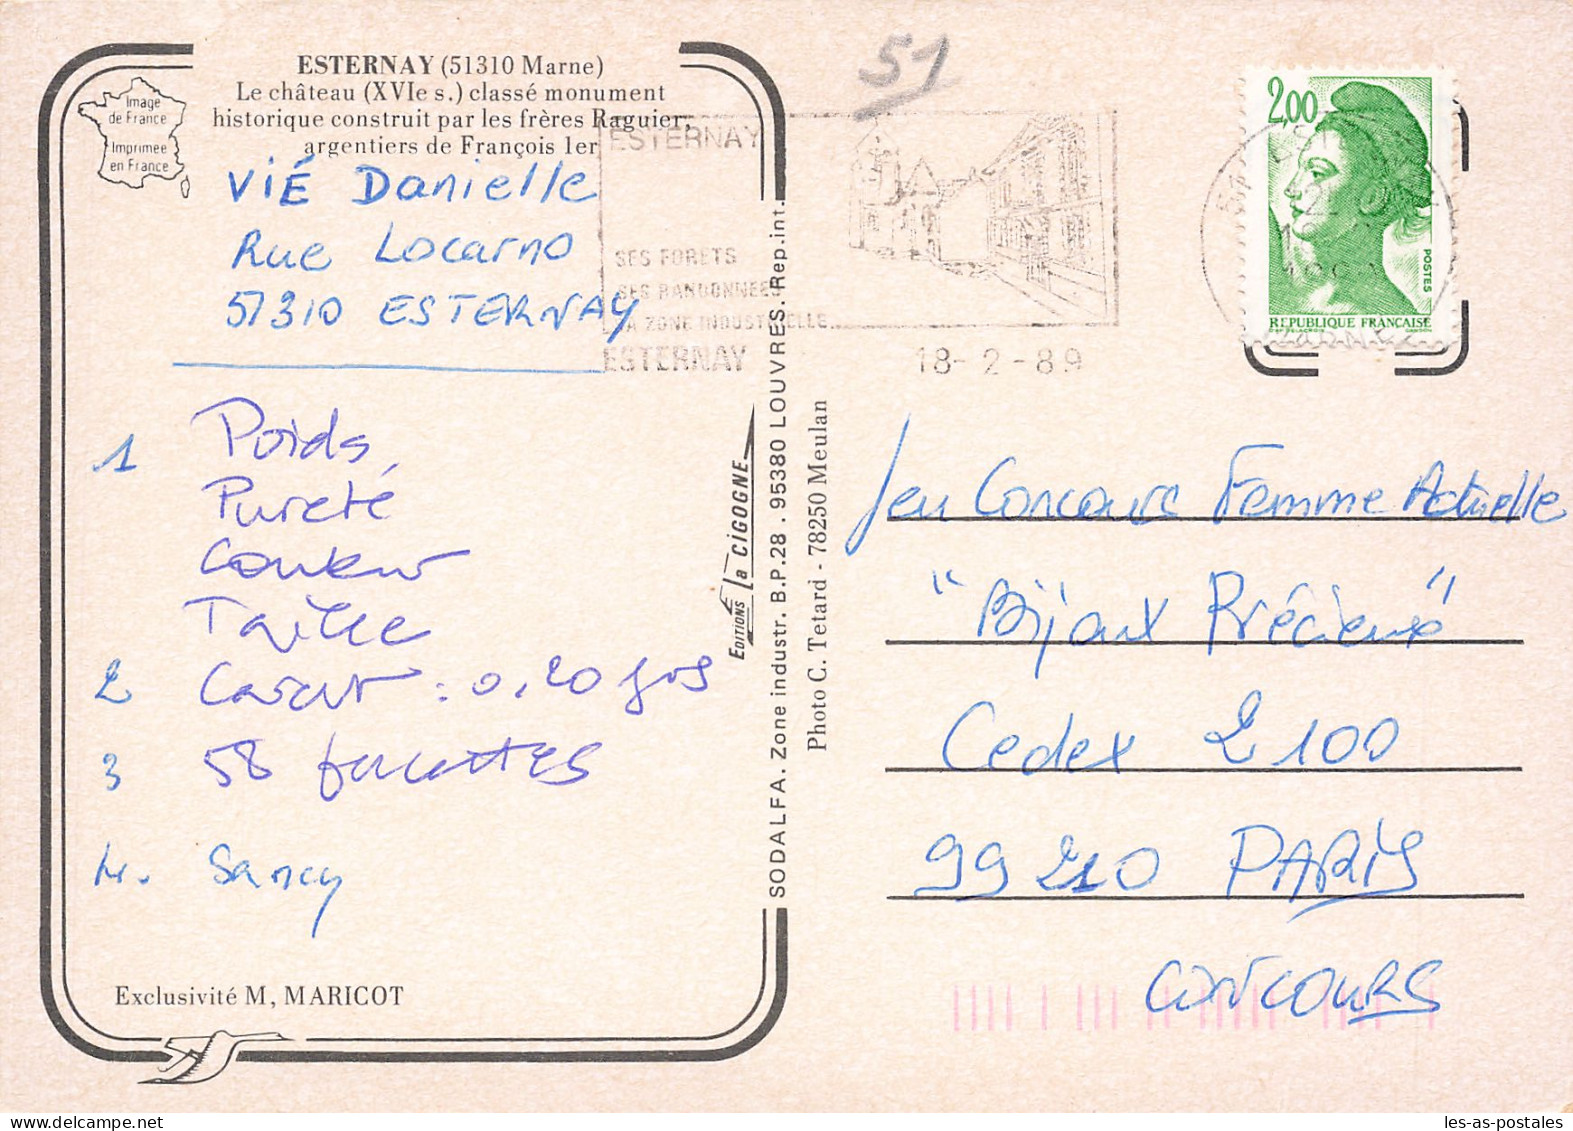 51
ESTERNAY (51310 Marne)
Le château (XVIe s.) classé monument
historique construit par les frères Raguier,
argentiers de François 1er
Image
de France
Imprimée
en France
VIÉ Danielle
Rue Locarno
51310 ESTERNAY
1 Poids,
Pureté
Couleur
Taille
2 Carat : 0,20 grs
3 58 facettes
4. Sancy
Exclusivité M, MARICOT
ESTERNAY
SES FORETS
SES RANDONNEES
SA ZONE INDUSTRIELLE
ESTERNAY
18-2-89
2,00
POSTES
REPUBLIQUE FRANCAISE
EDITIONS La CIGOGNE
SODALFA. Zone industr. B.P.28 . 95380 LOUVRES. Rep.int.
Photo C. Tetard - 78250 Meulan
Jeu Concours Femme Actuelle
"Bijoux Précieux"
Cedex 2100
99210 PARIS
CONCOURS
les-as-postales